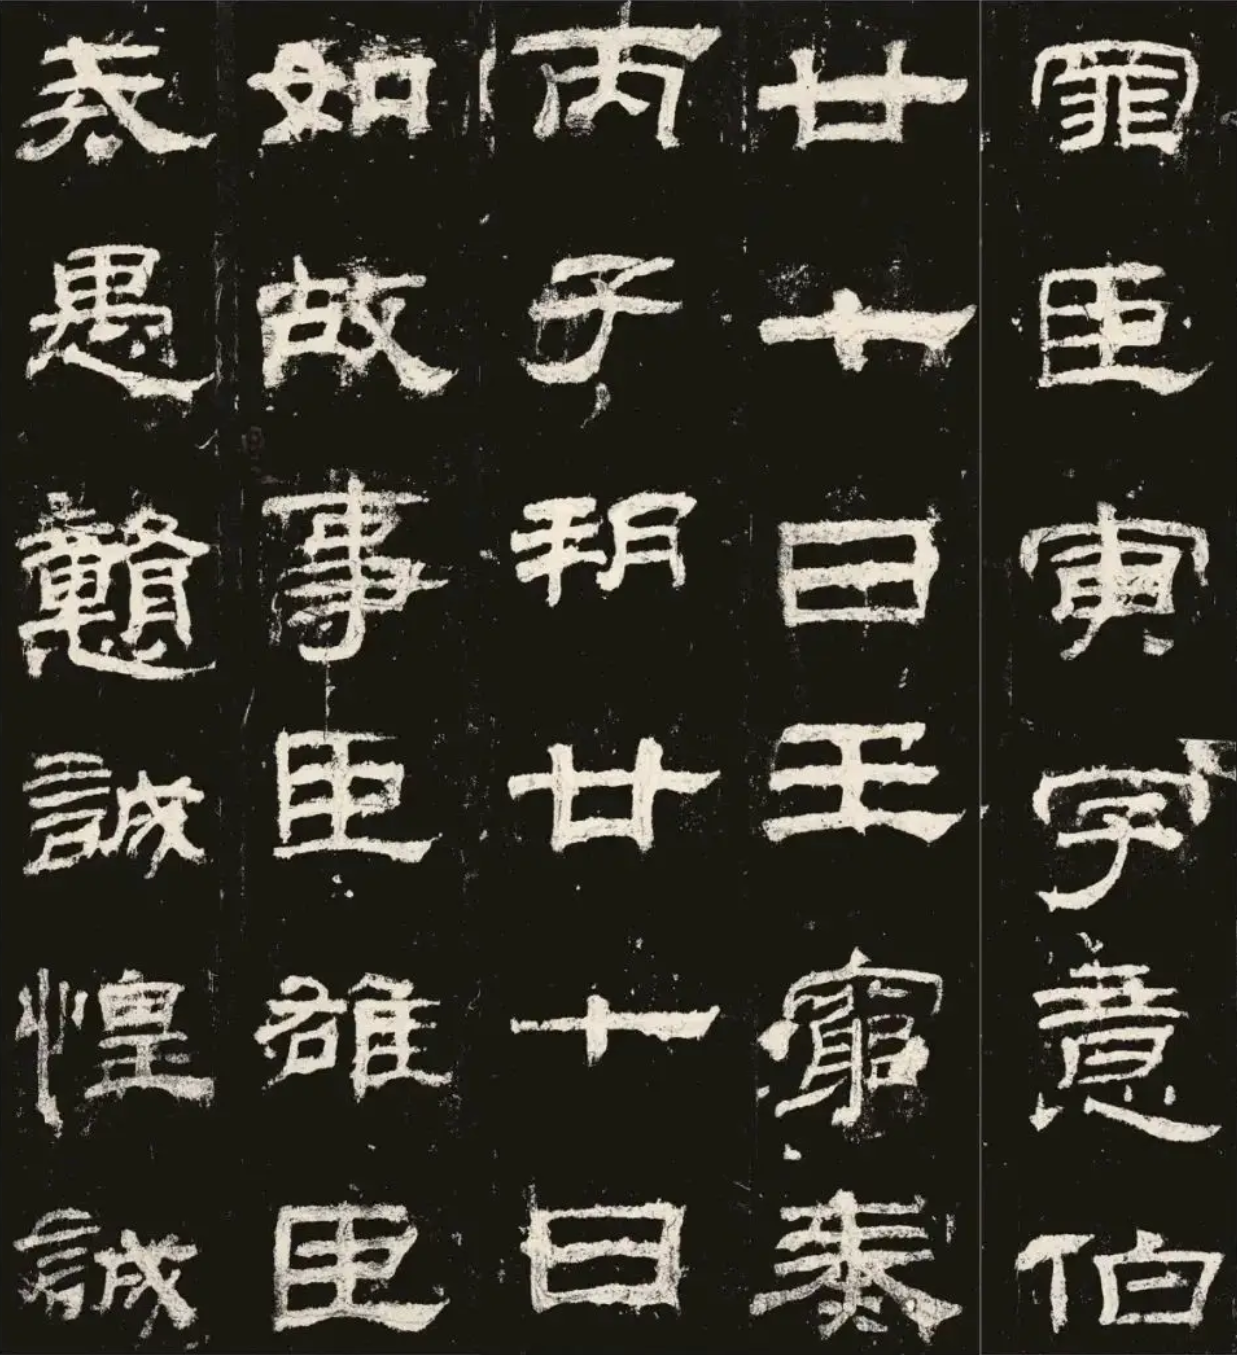 罪臣寅字意伯
廿七日壬窮奏
丙子朔廿七日
如故事臣雄臣
戒愚戇誠惶誠